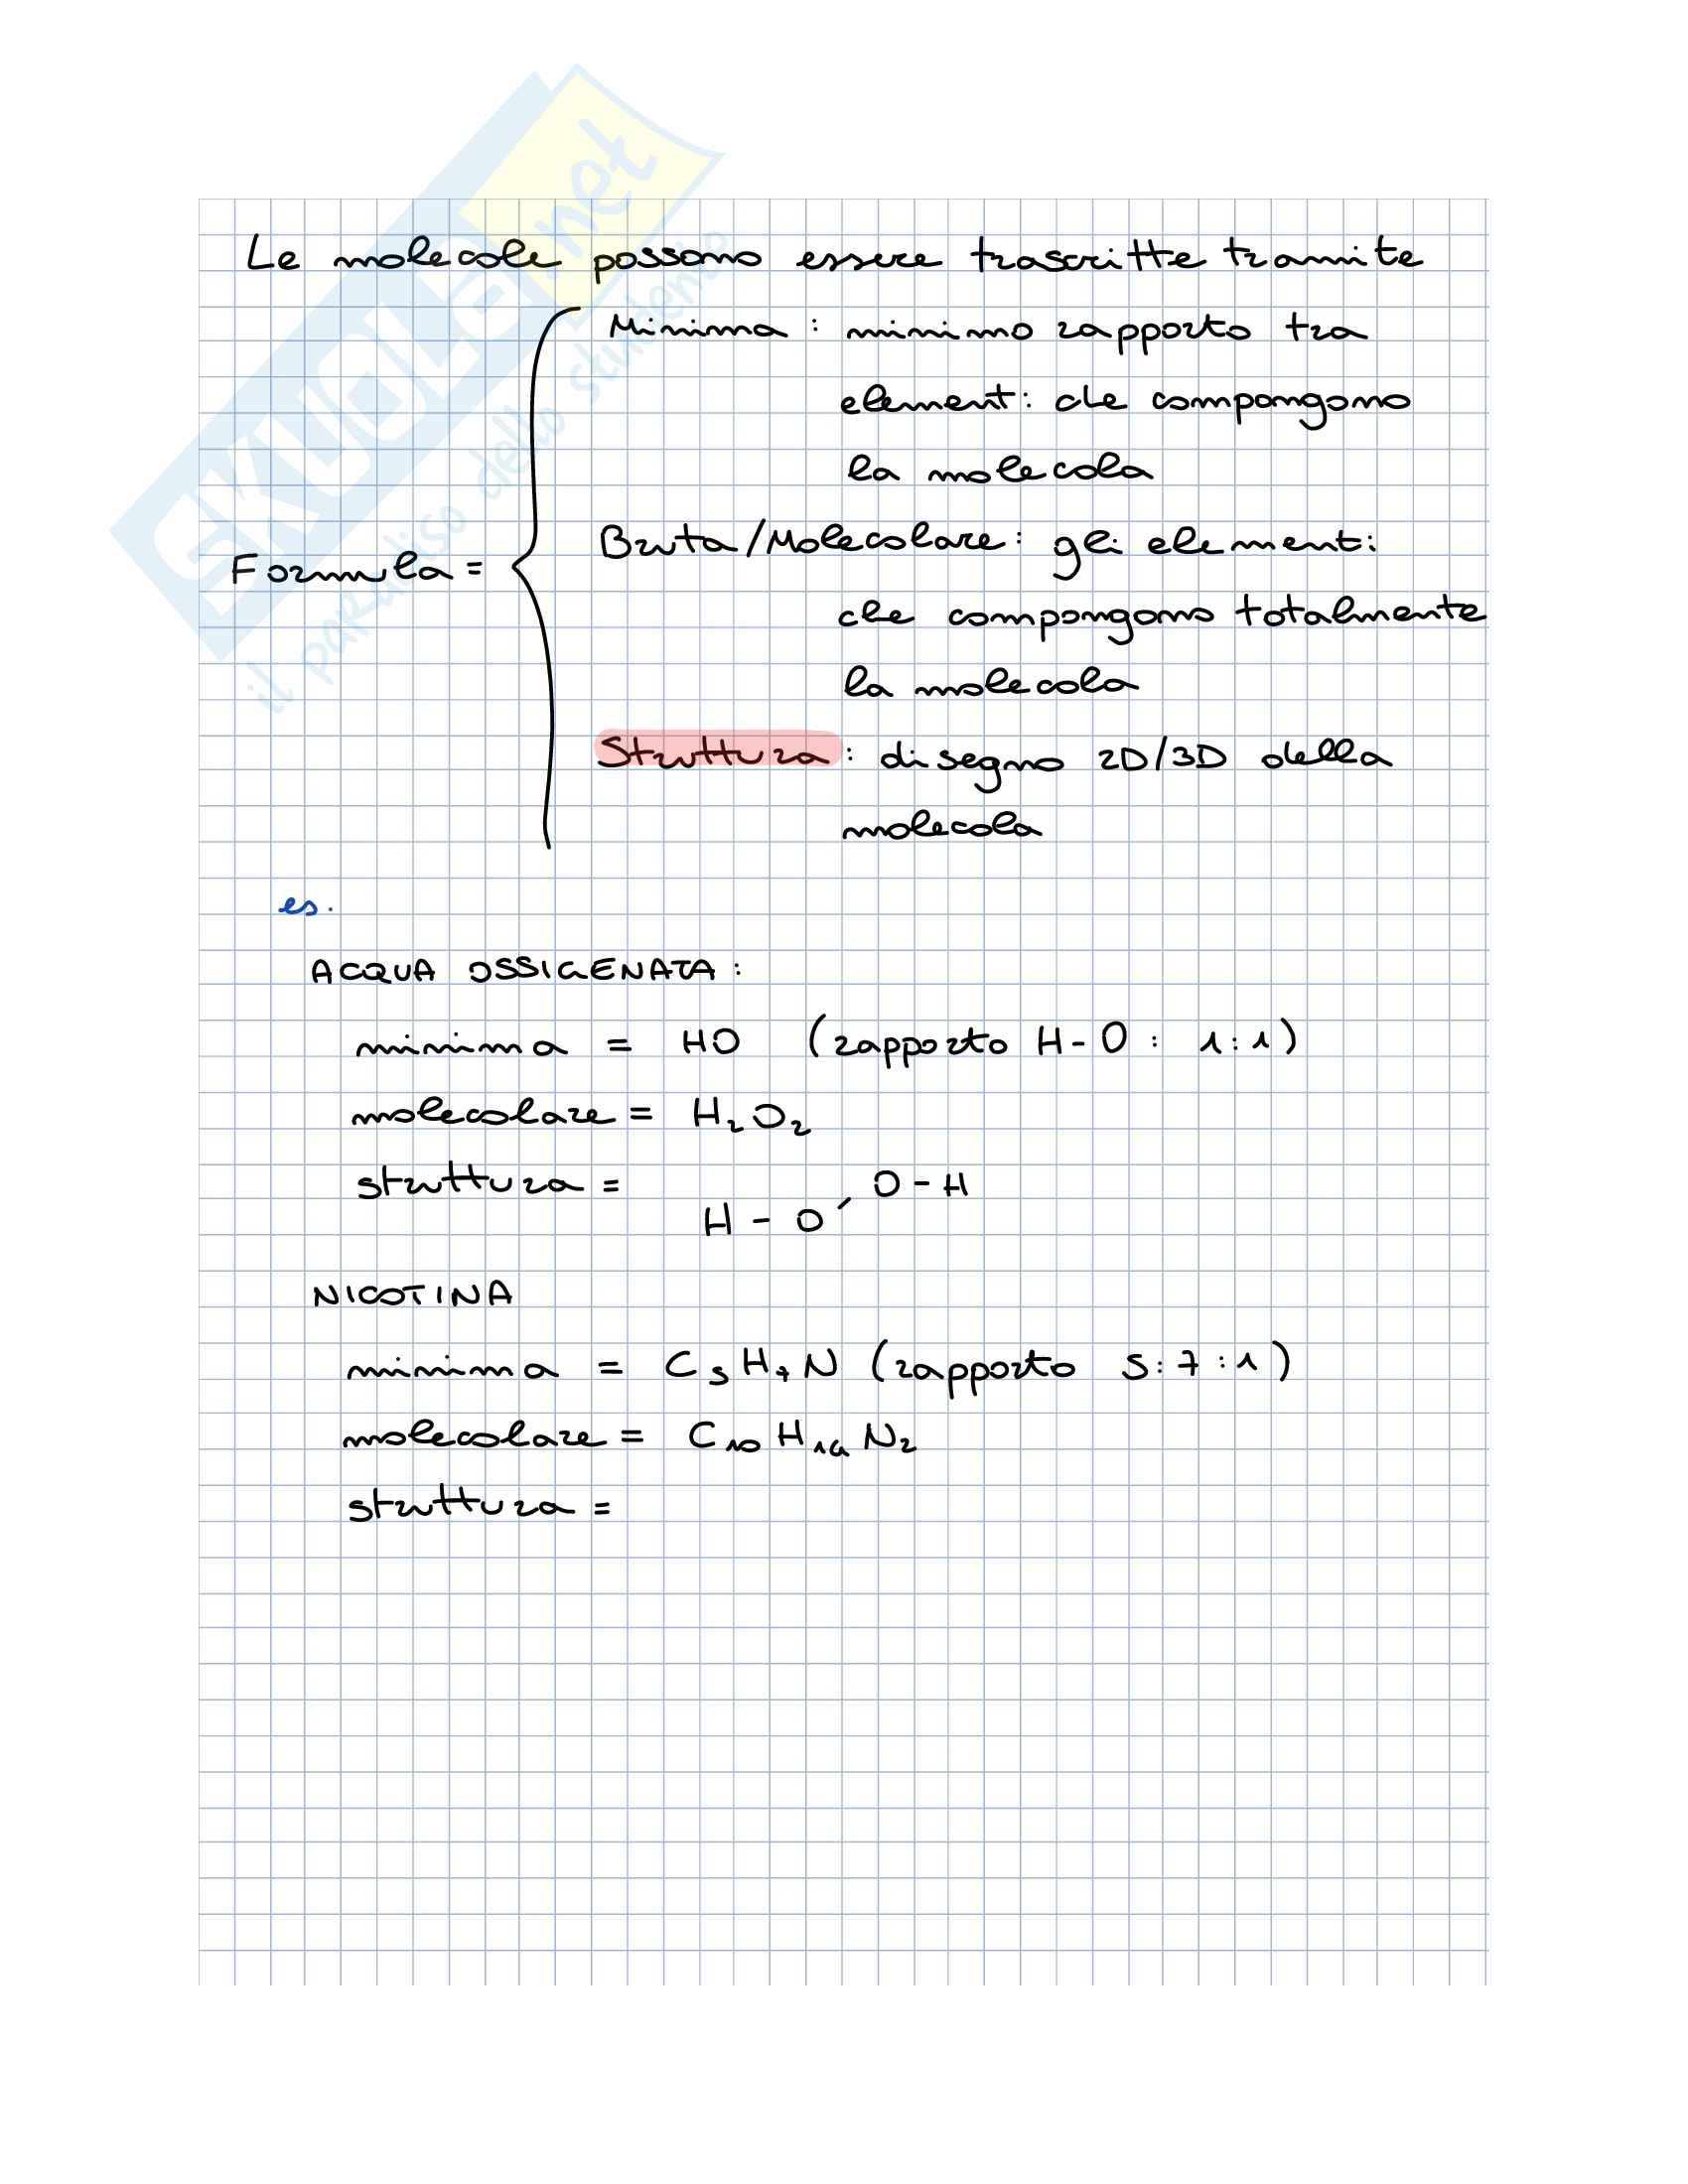 SKUOLA.net
il paradiso dello studente
Le molecole possono essere trascritte tramite
Formula =
Minima : minimo rapporto tra
elementi che compongono
la molecola
Bruta/Molecolare : gli elementi
che compongono totalmente
la molecola
Struttura : disegno 2D/3D della
molecola
es.
ACQUA OSSIGENATA :
minima = HO (rapporto H-O : 1:1)
molecolare = H₂O₂
struttura =
O-H
H-O
NICOTINA
minima = C₅H₇N (rapporto 5:7:1)
molecolare = C₁₀H₁₄N₂
struttura =